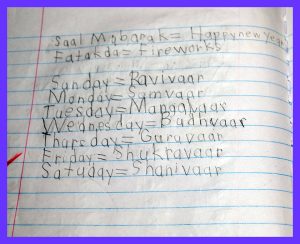 Saal Mobarak= Happy new year
Fatakda= Fireworks
Sanday= Ravivaar
Monday= Samvaar
Tuesday= Mangalvaar
Wednesday= Badhvaar
Thursday= Guruvaar
Friday= Shukravaar
Satuday= Shanivaar